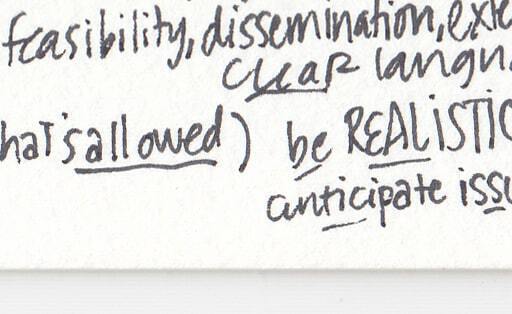 feasibility, dissemination, exte
clear langu
hat's allowed) be REALiSTIC
anticipate issu